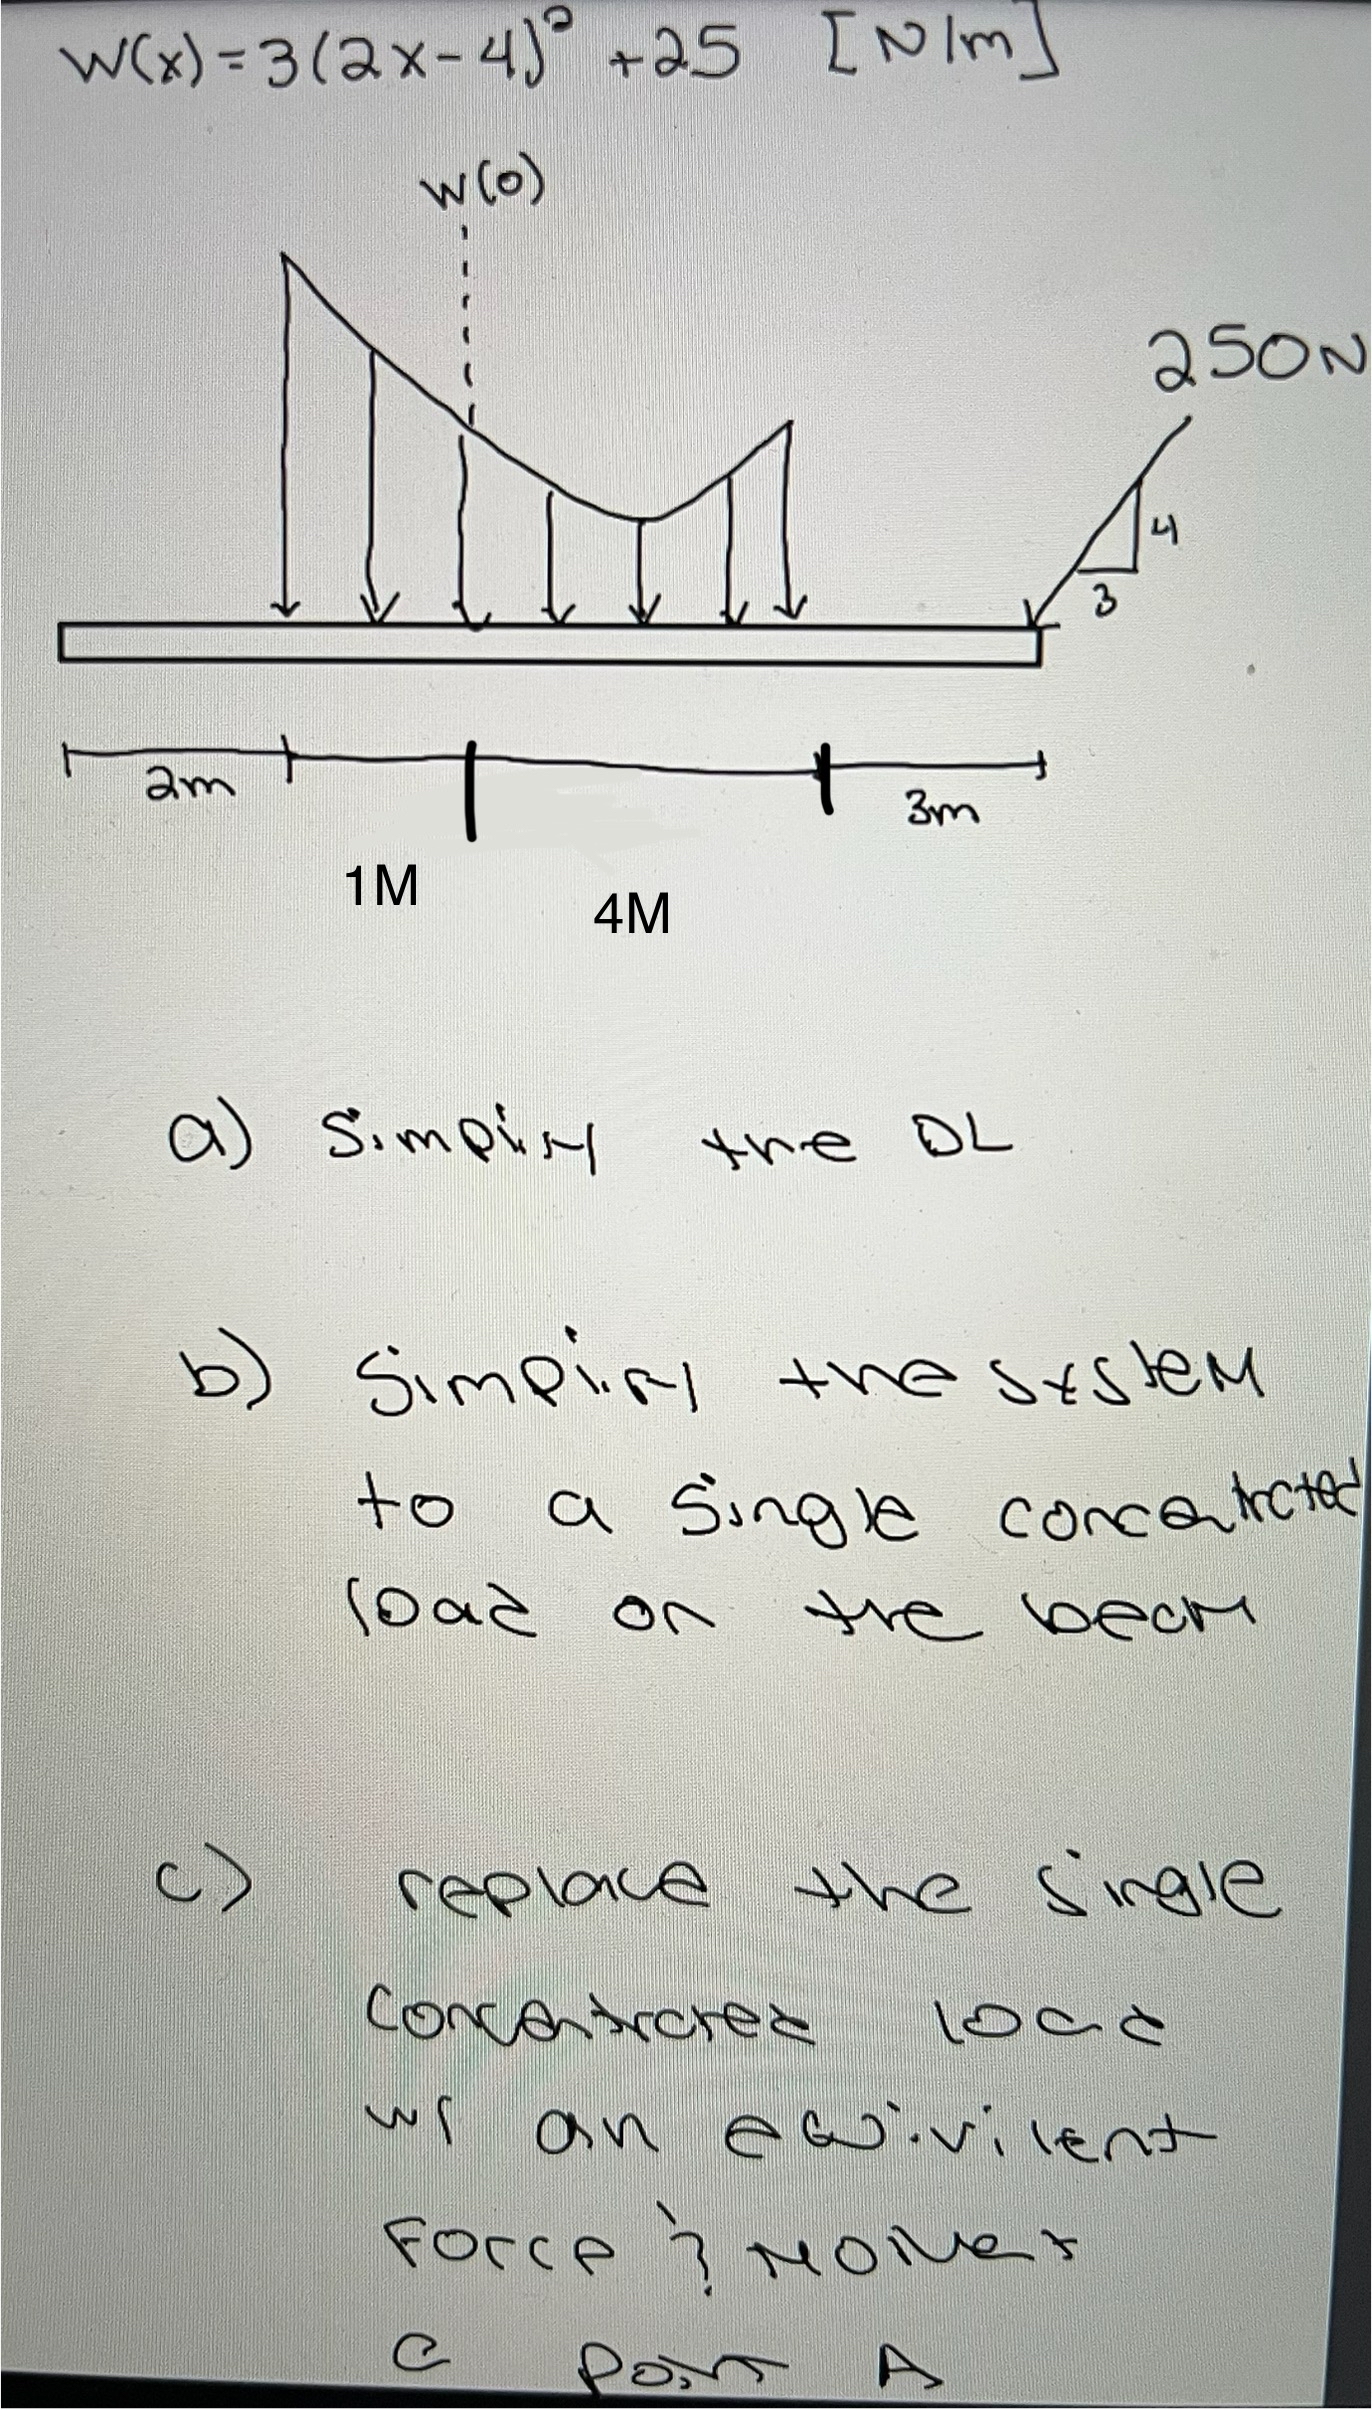 W(x)=3(2x-4)² +25 [N/m]
w(0)
250N
4
3
2m
3m
1M
4M
a) Simplify the DL
b) Simplify the system
to a single concentrated
load on the beam
c) replace the single
concentrated load
w/ an equivilent
Force & Moment
@ Point A